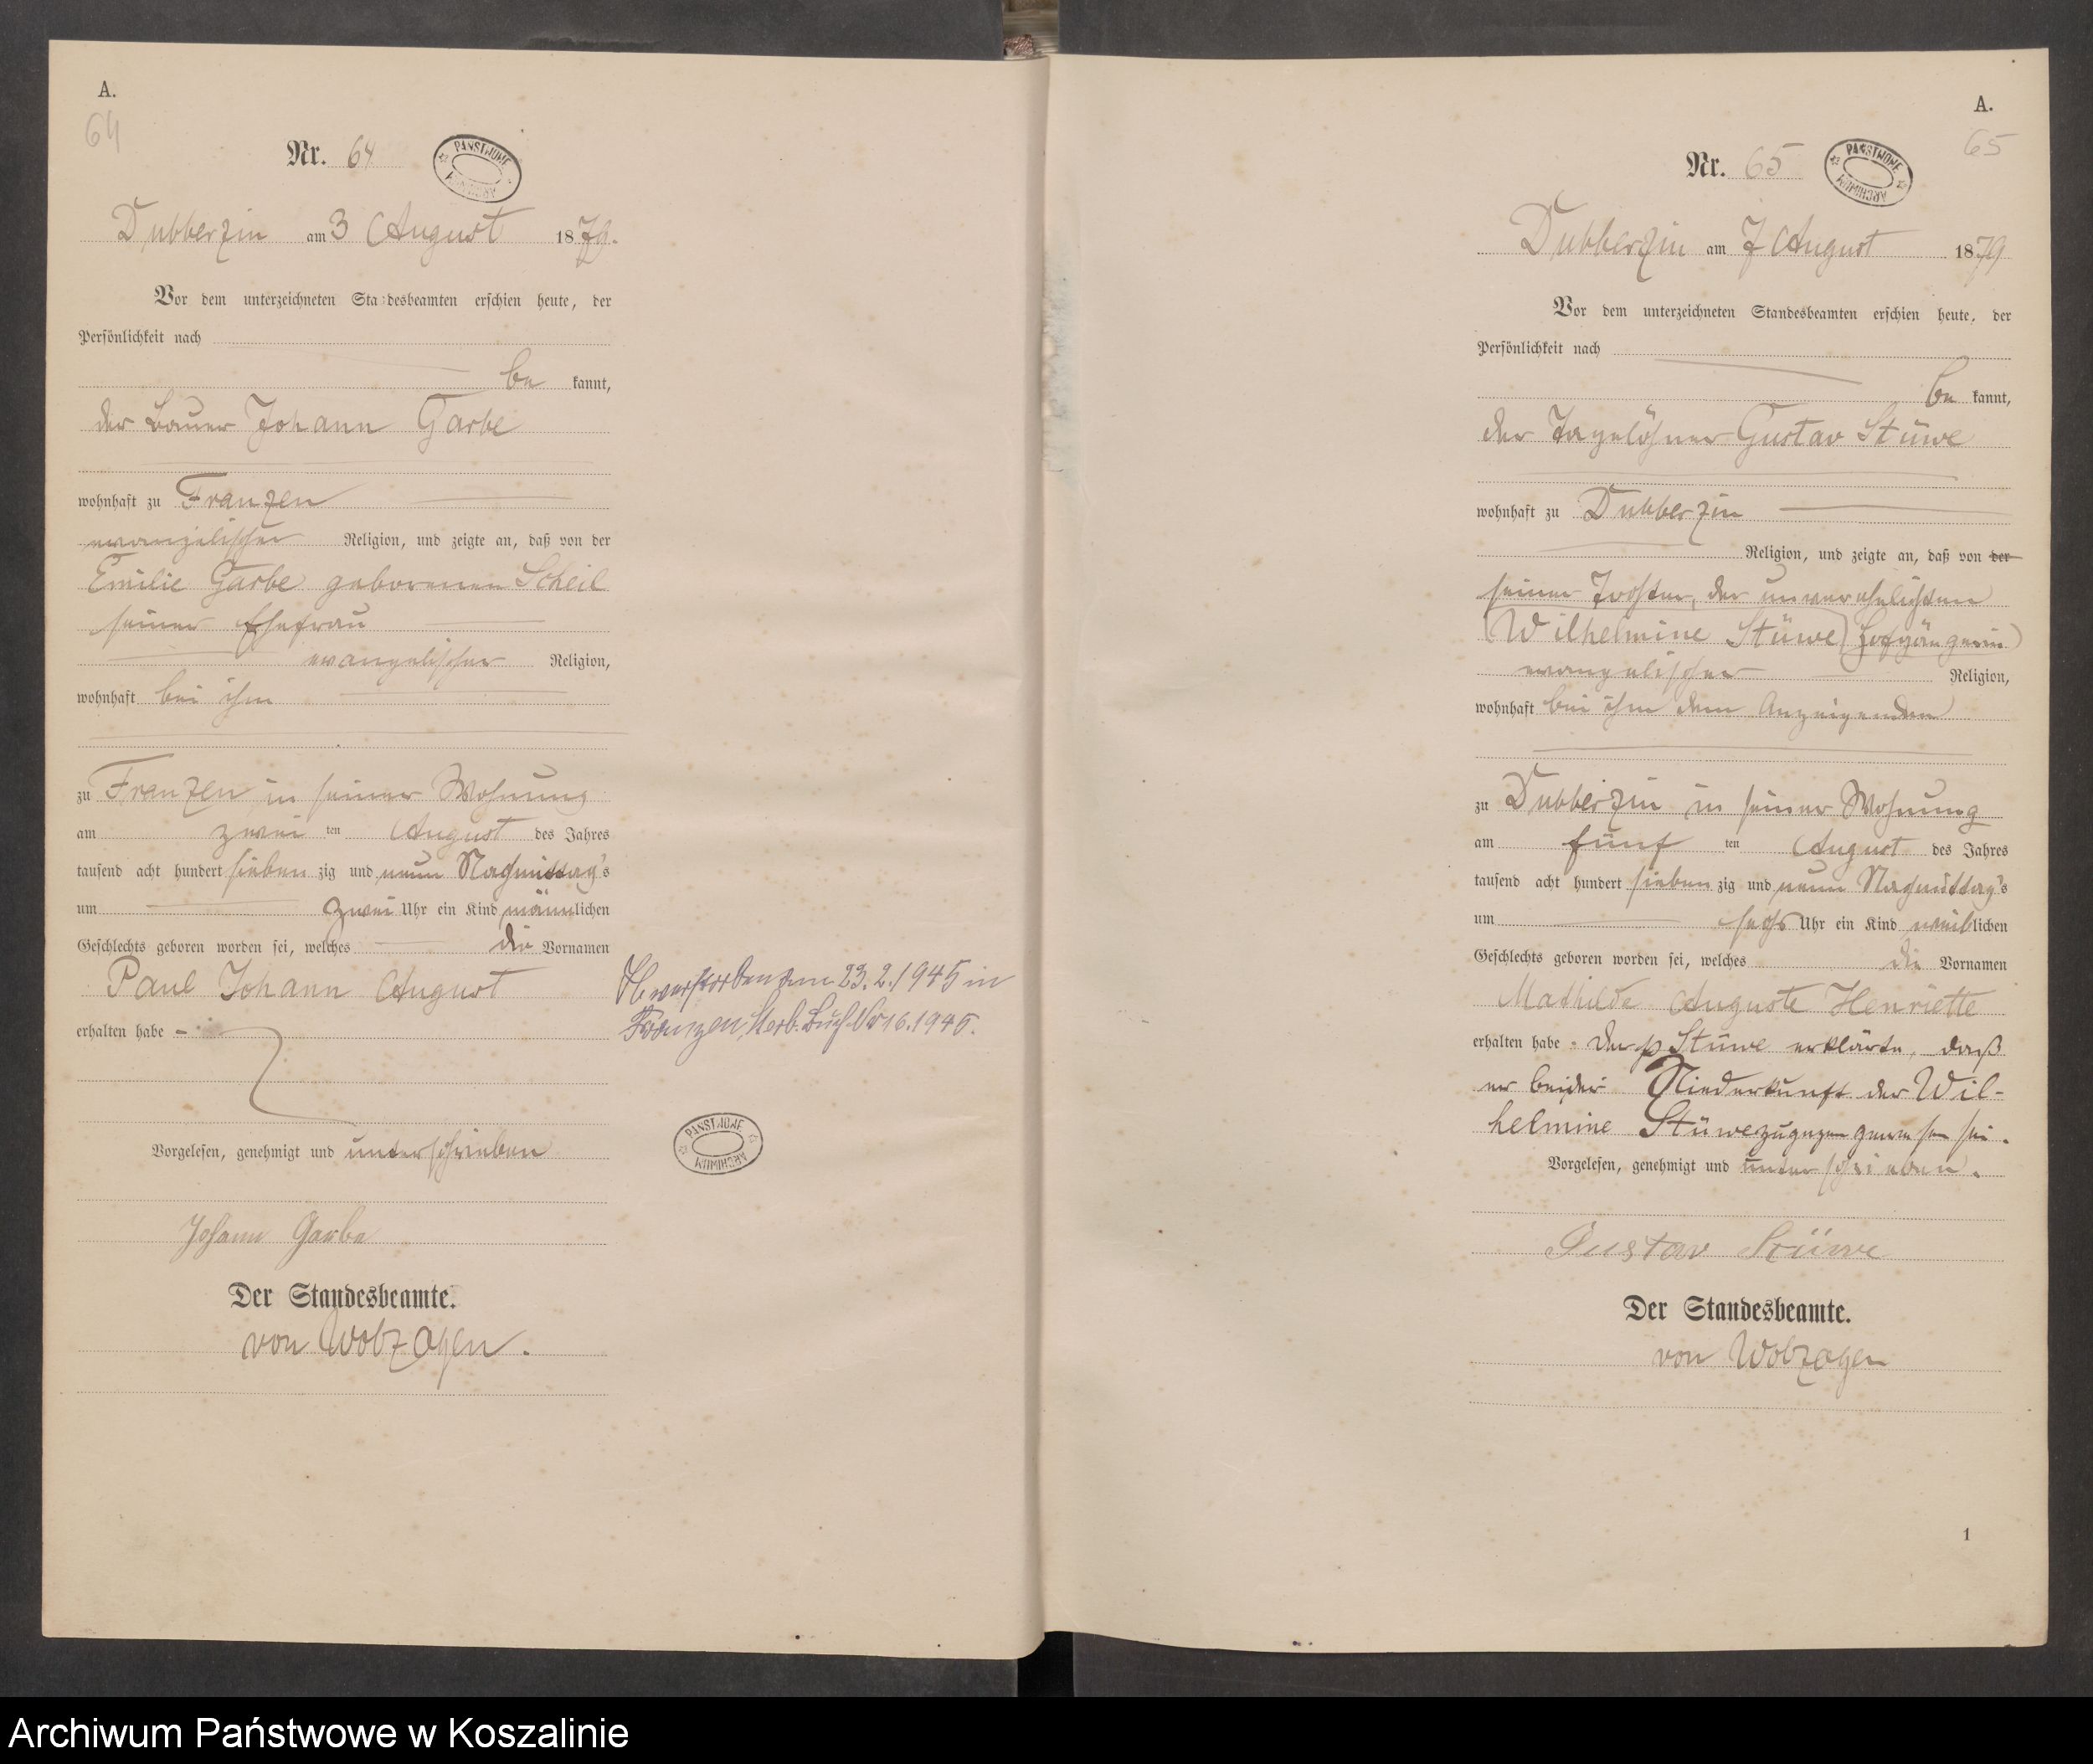 A.
64
Nr. 64
PAŃSTWOWE ARCHIWUM
Dubberzin am 3 August 1879.
Vor dem unterzeichneten Standesbeamten erschien heute, der
Persönlichkeit nach
be kannt,
der Bauer Johann Garbe
wohnhaft zu Franzen
evangelischer Religion, und zeigte an, daß von der
Emilie Garbe geborenen Scheil
seiner Ehefrau
evangelischer Religion,
wohnhaft bei ihm
zu Franzen in seiner Wohnung
am zwei ten August des Jahres
tausend acht hundert sieben zig und neun Nachmittag's
um zwei Uhr ein Kind männlichen
Geschlechts geboren worden sei, welches die Vornamen
Paul Johann August
erhalten habe
Vorgelesen, genehmigt und unterschrieben
Johann Garbe
Der Standesbeamte.
von Wobzogen.
verstorben am 23.2.1945 in
Franzen, Sterb. Buch Nr 16.1945.
PAŃSTWOWE ARCHIWUM
A.
65
Nr. 65
PAŃSTWOWE ARCHIWUM
Dubberzin am 7 August 1879
Vor dem unterzeichneten Standesbeamten erschien heute, der
Persönlichkeit nach
be kannt,
der Tagelöhner Gustav Stüwe
wohnhaft zu Dubberzin
Religion, und zeigte an, daß von der
seiner Tochter, der unverehelichten
(Wilhelmine Stüwe) Hofgängerin)
evangelischer Religion,
wohnhaft bei ihm dem Anzeigenden
zu Dubberzin in seiner Wohnung
am fünf ten August des Jahres
tausend acht hundert sieben zig und neun Nachmittag's
um sechs Uhr ein Kind weiblichen
Geschlechts geboren worden sei, welches die Vornamen
Mathilde Auguste Henriette
erhalten habe. Der p Stüwe erklärte, daß
er bei der Niederkunft der Wil-
helmine Stüwe zugegen gewesen sei.
Vorgelesen, genehmigt und unterschrieben.
Gustav Stüwe
Der Standesbeamte.
von Wobzogen
1
Archiwum Państwowe w Koszalinie